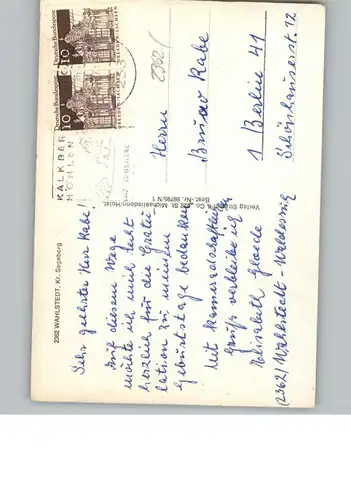 Sehr geehrter Herr Rabe!
Auf diesem Wege
möchte ich mich recht
herzlich für die Gratu
lation zu meinem
Geburtstage bedanken.
Mit kameradschaftlichem
Gruß verbleibe ich
Elisabeth
(2362) Wahlstedt-Waldesweg
2362 WAHLSTEDT, Kr. Segeberg
Verlag
& Co
St. Michaelisdonn/Holst.
Best.-Nr.
KALKBER
HÖHLEN
BAD SEGEBERG
Deutsche Bundespost
10
Deutsche Bundespost
10
2362/
Herrn
Bruno Rabe
1 Berlin 41
Schönhauserstr. 12